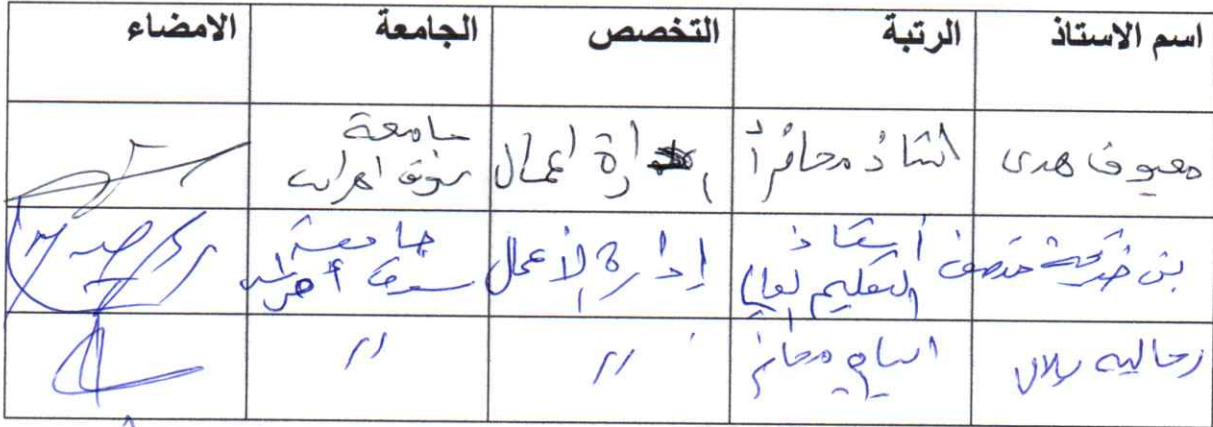 اسم الاستاذ الرتبة التخصص الجامعة الامضاء
معيوف هدى استاذ محاضر أ إدارة اعمال جامعة
سوق اهراس
بن خديجة منصف أستاذ إدارة الأعمال جامعة
التعليم العالي سوق أهراس
بلال استاذ محاضر // //